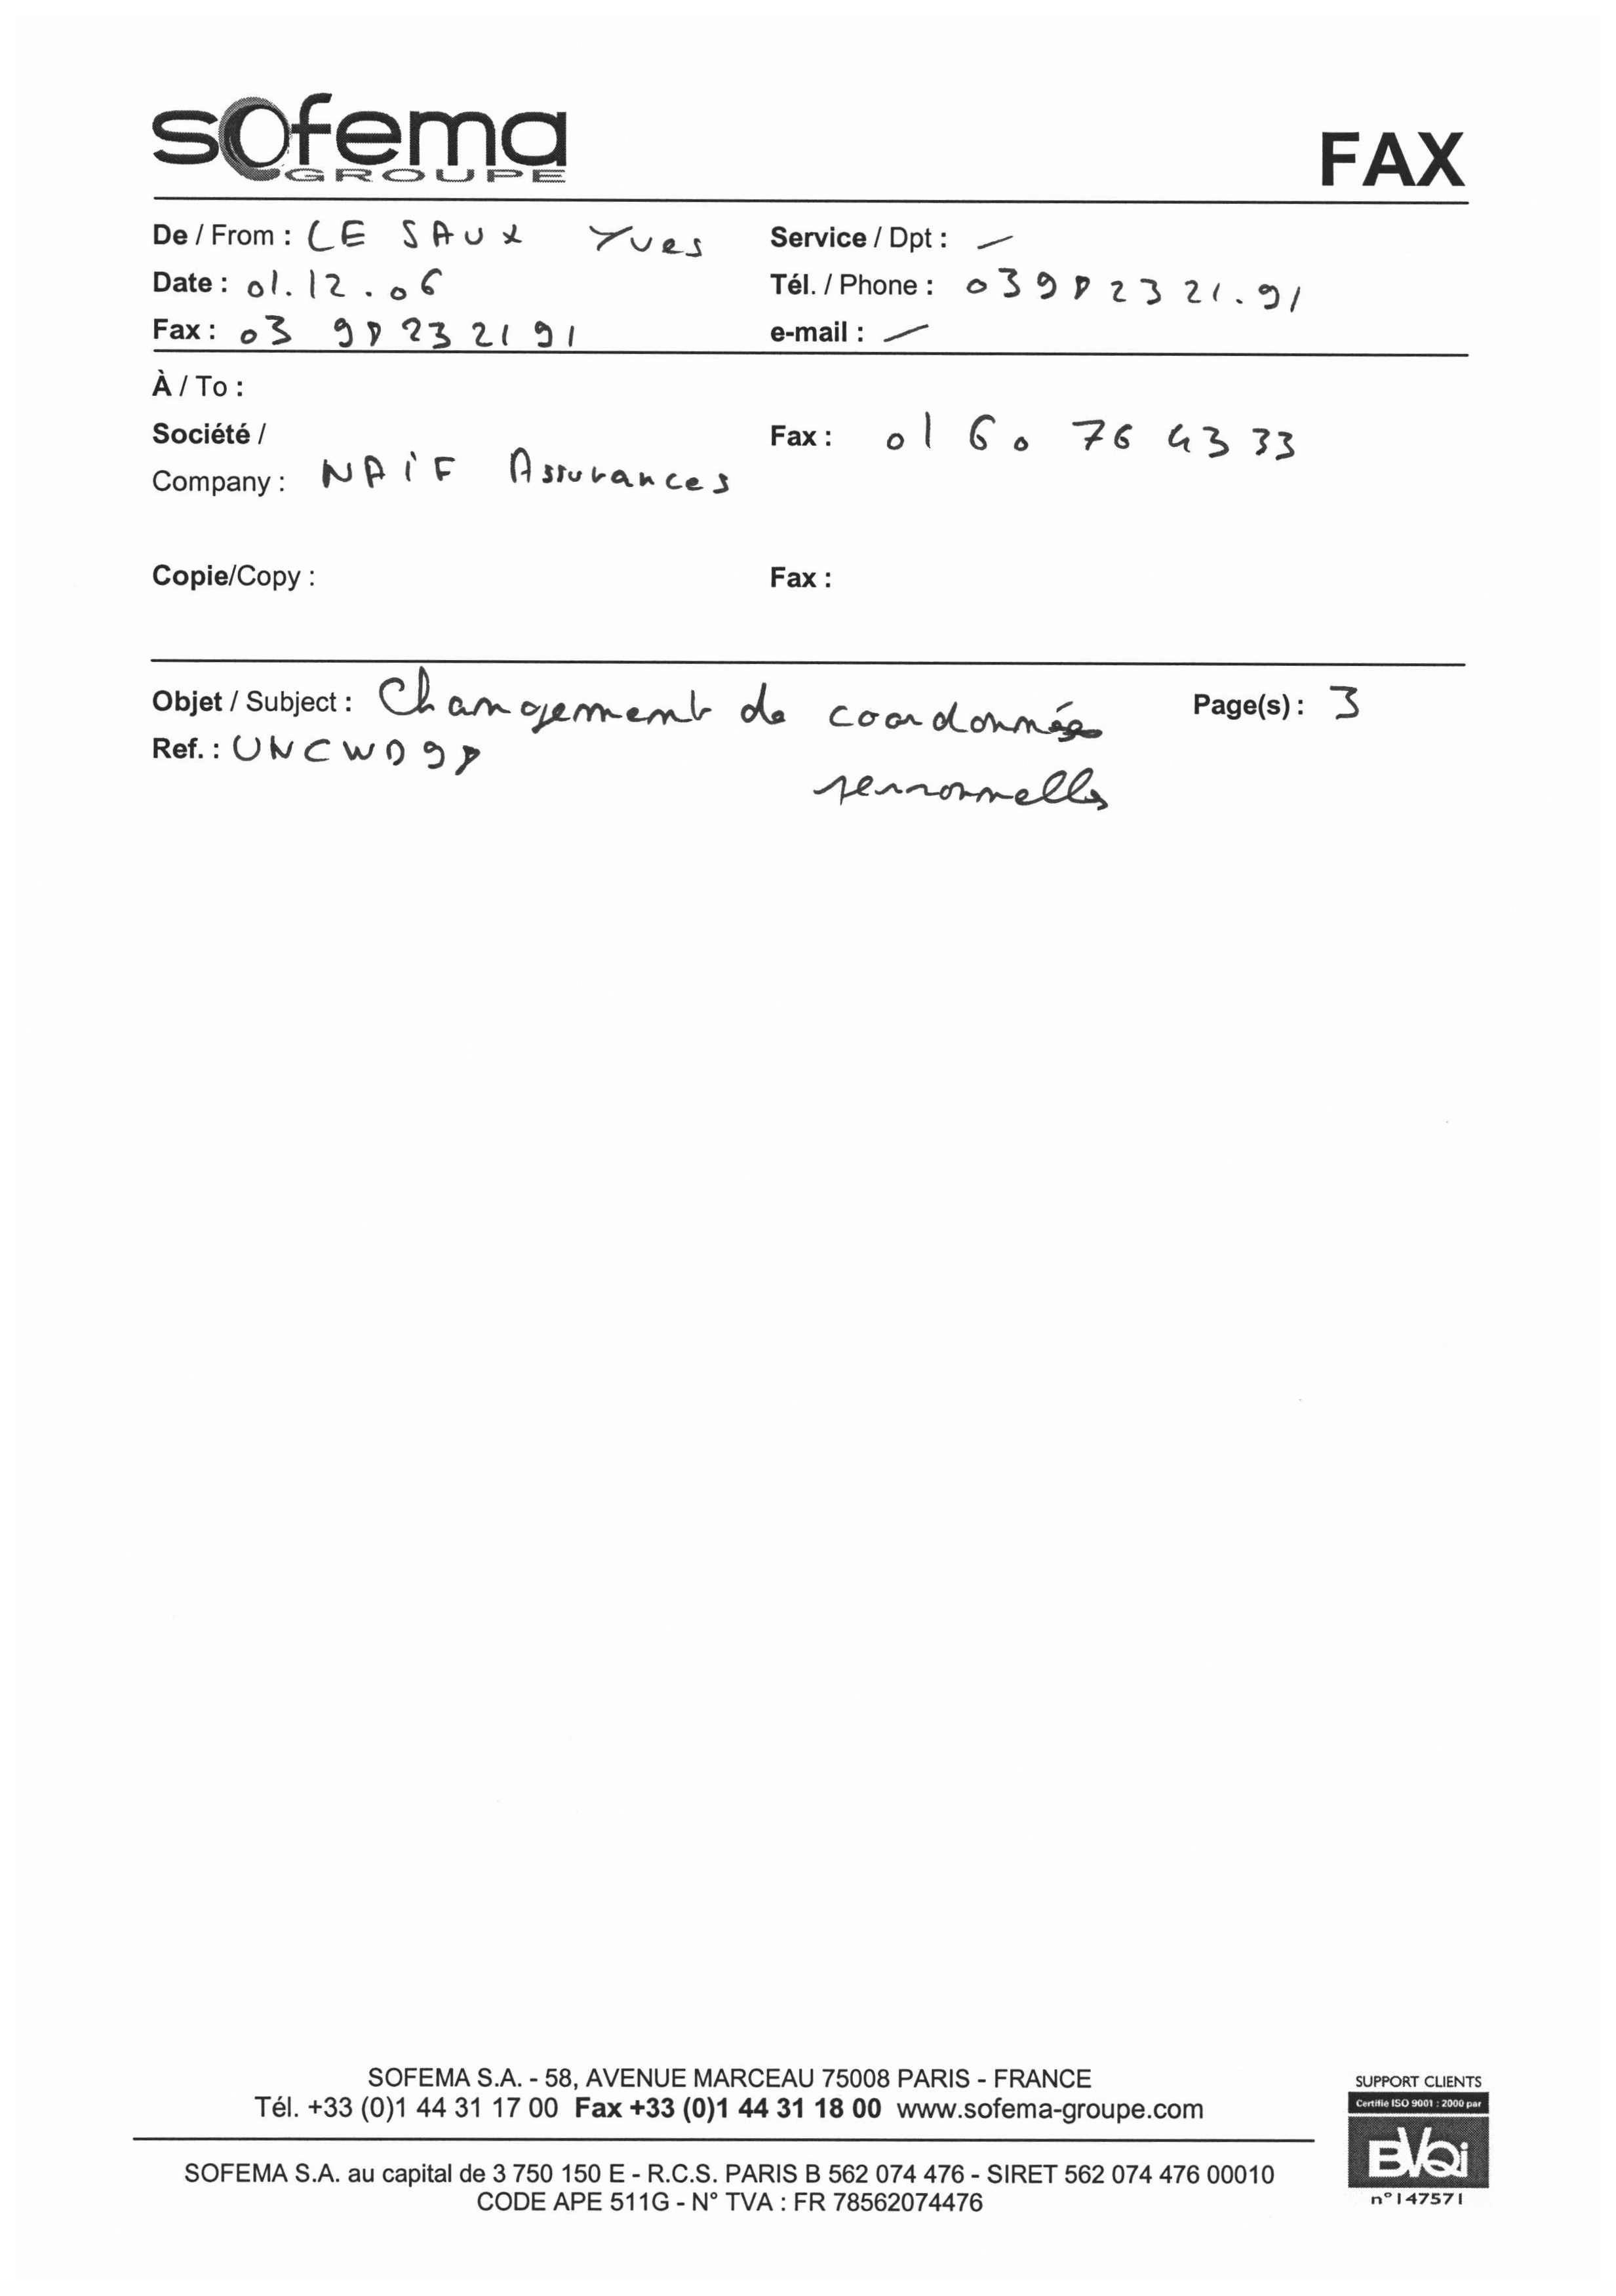 sofema
GROUPE
FAX
De / From : LE SAUX Yves
Service / Dpt : —
Date : 01.12.06
Tél. / Phone : 039823 21.91
Fax : 03 98232191
e-mail : —
À / To :
Société /
Fax : 01 60 76 43 33
Company : NAïF Assurances
Copie/Copy :
Fax :
Objet / Subject : Changement de coordonnées
Page(s) : 3
Ref. : UNCWD98
personnelles
SOFEMA S.A. - 58, AVENUE MARCEAU 75008 PARIS - FRANCE
Tél. +33 (0)1 44 31 17 00 Fax +33 (0)1 44 31 18 00 www.sofema-groupe.com
SOFEMA S.A. au capital de 3 750 150 E - R.C.S. PARIS B 562 074 476 - SIRET 562 074 476 00010
CODE APE 511G - N° TVA : FR 78562074476
SUPPORT CLIENTS
Certifié ISO 9001 : 2000 par
BVQi
n°147571